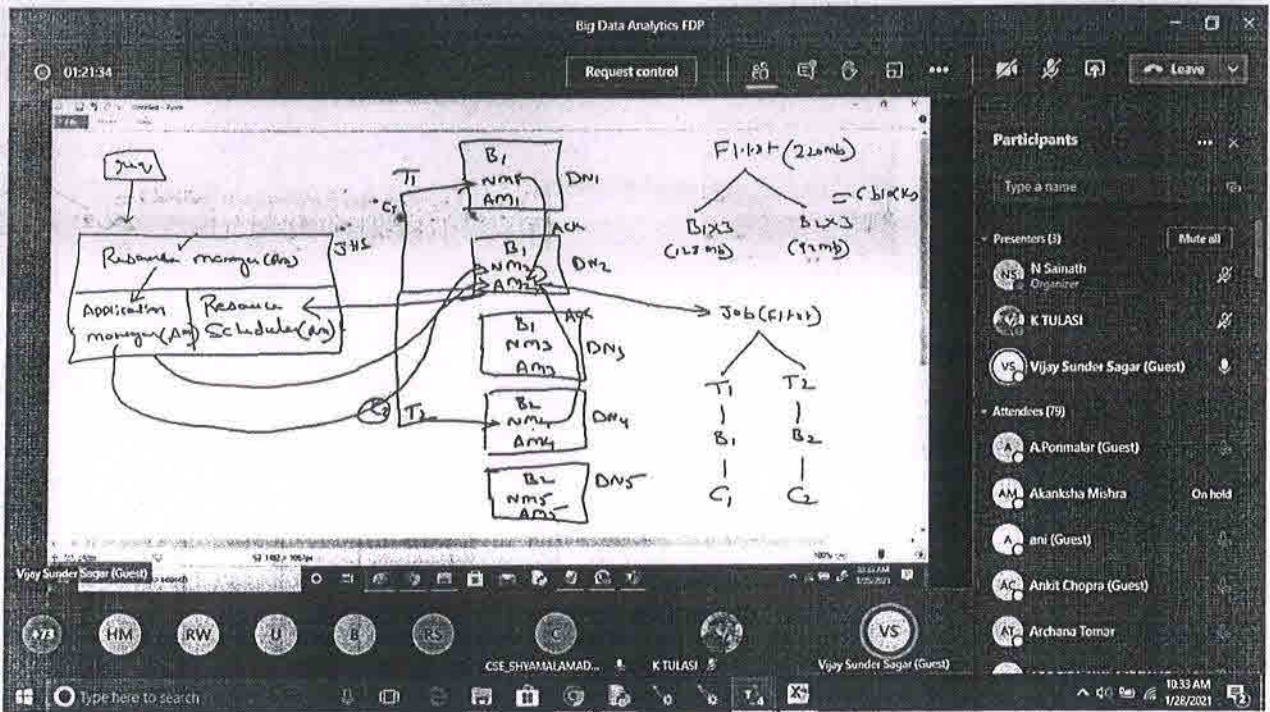 Big Data Analytics FDP
01:21:34
Request control
Leave
Untitled - Paint
req
Resource manager(Rm)
JHS
Application
manager(Am)
Resource
Scheduler(Rs)
T1
C1
B1
NM1
AM1
DN1
ACK
B1
NM2
AM2
DN2
ACK
B1
NM3
AM3
DN3
C2
T2
B2
NM4
AM4
DN4
B2
NM5
AM5
DN5
F1.txt (220mb)
= 6 blocks
B1x3
(128mb)
B2x3
(92mb)
Job(F1.txt)
T1
T2
B1
B2
C1
C2
100%
10:33 AM
Participants
Type a name
Presenters (3)
Mute all
NS
N Sainath
Organizer
K TULASI
VS
Vijay Sunder Sagar (Guest)
Attendees (79)
A
A.Ponmalar (Guest)
AM
Akanksha Mishra
On hold
A
ani (Guest)
AC
Ankit Chopra (Guest)
AT
Archana Tomar
Vijay Sunder Sagar (Guest)
+73
HM
RW
U
B
RS
C
VS
CSE_SHYAMALAMAD...
K TULASI
Vijay Sunder Sagar (Guest)
Type here to search
10:33 AM
1/28/2021